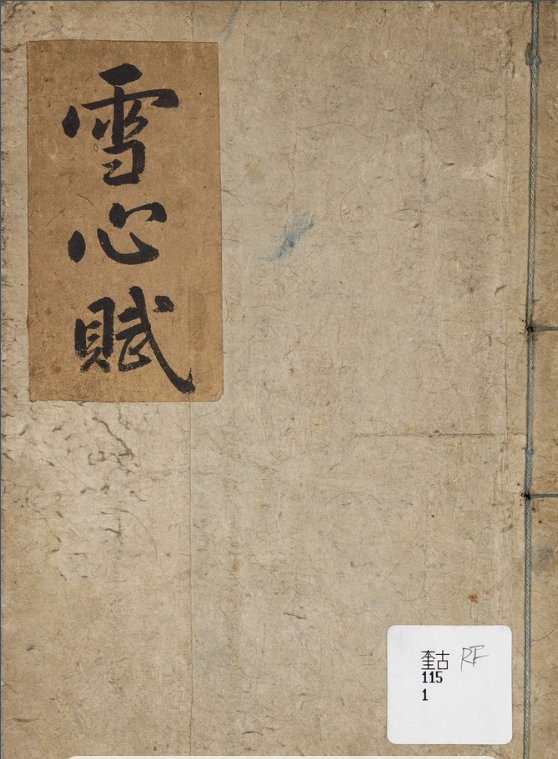 雪心賦
奎古 RF
115
1